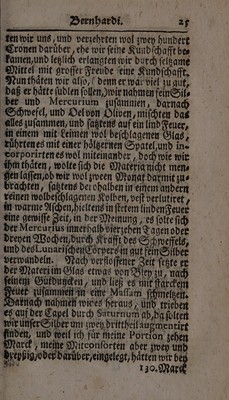 Bernhardi. 25
ten wir uns, und verzehrten wol zwey hundert
Cronen darüber, ehe wir seine Kundschafft be-
kamen, und letzlich erlangten wir durch seltzame
Mittel mit grosser Freude eine Kundschafft.
Nun thäten wir also, (denn er war viel zu gut,
daß er hätte sudlen sollen,) wir nahmen sein Sil-
ber und Mercurium zusammen, darnach
Schwefel, und Oel von Oliven, mischten das
alles zusammen, und satztens auf ein lind Feuer,
in einem mit Leimen wol beschlagenen Glas,
rührten es mit einer höltzernen Spatel, und in-
corporirten es wol miteinander, doch wie wir
ihm thäten, wolte sich die Materia nicht men-
gen lassen, ob wir wol zween Monat darmit zu-
brachten, satztens derohalben in einem andern
reinen wolbeschlagenen Kolben, vest verlutiret,
in warme Aschen, hieltens in stetem linden Feuer
eine gewisse Zeit, in der Meinung, es solte sich
der Mercurius innerhalb vierzehen Tagen oder
dreyen Wochen, durch Krafft des Schweffels,
und des Lunarischen Cörpers in gut fein Silber
verwandeln. Nach verflossener Zeit setzte er
der Materi im Glas etwas von Bley zu, nach
seinem Gutduncken, und ließ es mit starckem
Feuer zusammen in eine Massam schmeltzen.
Darnach nahmen wirs heraus, und trieben
es auf der Capel durch Saturnum ab, da solten
wir unser Silber um zwey drittheil augmentirt
finden, und weil ich für meine Portion zehen
Marck, meine Mitconsorten aber zwey und
dreyßig, oder darüber, eingelegt, hätten wir bey
130. Marck